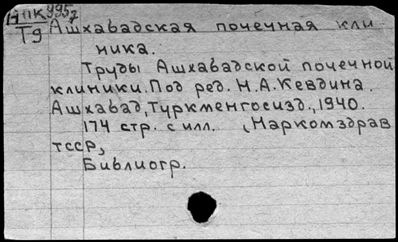 НПК 9957
Т9
Ашхабадская почечная кли
ника.
Труды Ашхабадской почечной
клиники. Под ред. Н.А. Кевдина.
Ашхабад, Туркменгосизд., 1940.
174 стр. с илл. (Наркомздрав
ТССР)
Библиогр.